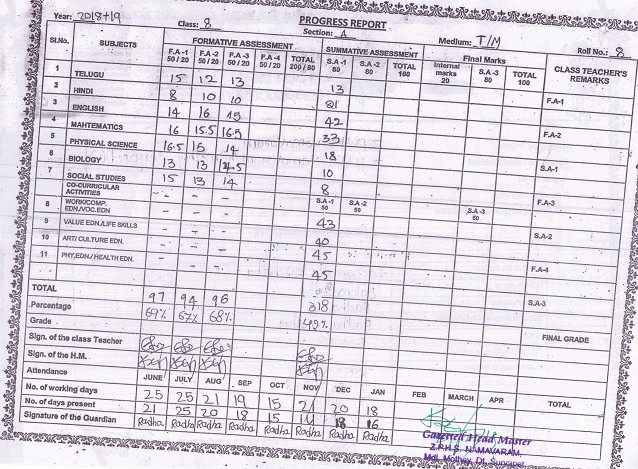 Year: 2018+19 Class: 8 PROGRESS REPORT Section: A Medium: T/M Roll No.: 8
Sl.No. SUBJECTS FORMATIVE ASSESSMENT SUMMATIVE ASSESSMENT Final Marks CLASS TEACHER'S REMARKS
F.A-1 50/20 F.A-2 50/20 F.A-3 50/20 F.A-4 50/20 TOTAL 200/80 S.A-1 80 S.A-2 80 TOTAL 160 Internal marks 20 S.A-3 80 TOTAL 100
1 TELUGU 15 12 13 13 F.A-1
2 HINDI 8 10 10
3 ENGLISH 14 16 15 42 F.A-2
4 MAHTEMATICS 16 15.5 16.5 33
5 PHYSICAL SCIENCE 16.5 15 14 18 S.A-1
6 BIOLOGY 13 13 10
7 SOCIAL STUDIES 15 13 14 8 F.A-3
CO-CURRICULAR ACTIVITIES S.A-1 50 S.A-2 50 S.A-3 50
8 WORK/COMP. EDN./VOC.EDN. - - - 43 S.A-2
9 VALUE EDN./LIFE SKILLS - - - 40
10 ART/ CULTURE EDN. - - - 45 F.A-4
11 PHY.EDN./ HEALTH EDN. - - - 45
TOTAL 97 94 96 318 S.A-3
Percentage 69% 67% 68%
Grade FINAL GRADE
Sign. of the class Teacher
Sign. of the H.M.
Attendance JUNE JULY AUG SEP OCT NOV DEC JAN FEB MARCH APR TOTAL
No. of working days 25 25 21 19 15 20 18
No. of days present 21 25 20 18 15 18 16
Signature of the Guardian Radha Radha Radha Radha Radha Radha Radha Radha
Gazetted Head Master
Z.P.H.S. NAMAVARAM,
Mdl. Mothey, Dt. Suryapet